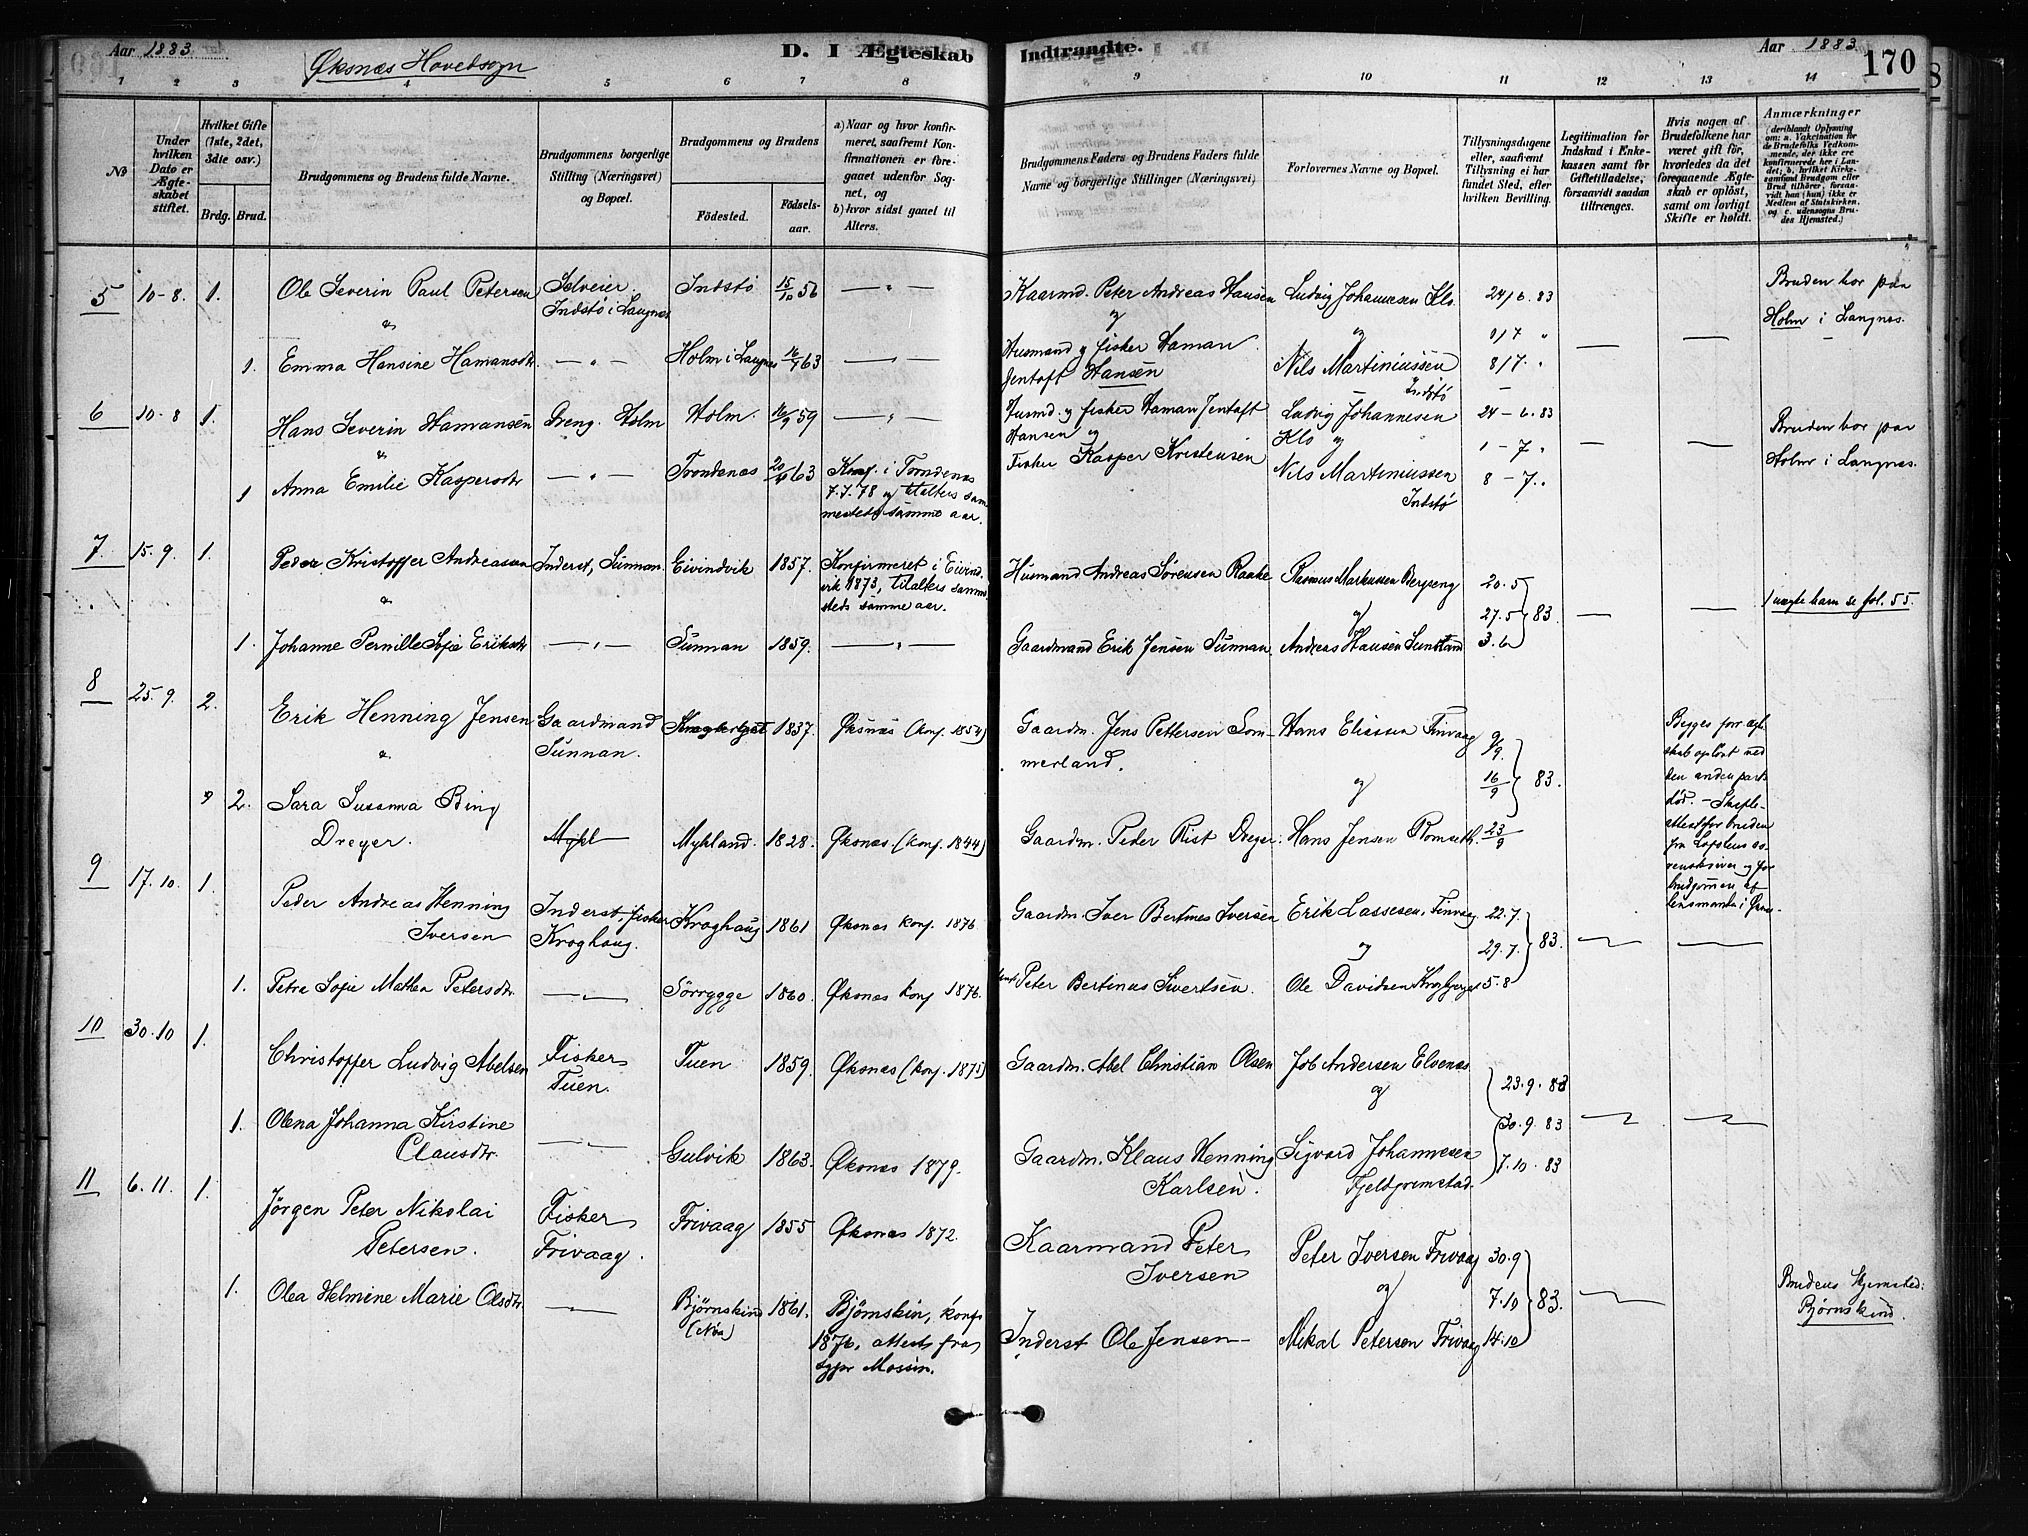 Aar 1883.
Øksnæs Hovedsogn
D. I Ægteskab Indtraadte.
Aar 1883
170
1 2 3 4 5 6 7 8 9 10 11 12 13 14
No
Under hvilken Dato er Ægteskabet stiftet.
Hvilket Gifte (1ste, 2det, 3die osv.)
Brdg. Brud.
Brudgommens og Brudens fulde Navne.
Brudgommens borgerlige Stilling (Næringsvei) og Bopæl.
Brudgommens og Brudens
Födested.
Födselsaar.
a) Naar og hvor konfirmeret, saafremt Konfirmationen er foregaaet udenfor Sognet, og
b) hvor sidst gaaet til Alters.
Brudgommens Faders og Brudens Faders fulde Navne og borgerlige Stillinger (Næringsvei)
Forlovernes Navne og Bopæl.
Tillysningsdagene eller, saafremt Tillysning ei har fundet Sted, efter hvilken Bevilling.
Legitimation for Indskud i Enkekassen samt for Giftetilladelse, forsaavidt saadan tiltrænges.
Hvis nogen af Brudefolkene har været gift för, hvorledes da det foregaaende Ægteskab er oplöst, samt om lovligt Skifte er holdt.
Anmærkninger
(deriblandt Oplysning om: a. Vakcination for de Brudefolks Vedkommende, der ikke ere konfirmerede her i Landet; b. hvilket Kirkesamfund Brudgom eller Brud tilhörer, forsaavidt han (hun) ikke er Medlem af Statskirken, og c. udensogns Brudes Hjemsted.)
5 10-8. 1. Ole Severin Paul Petersen Selveier. Indstø i Langnes Indstø 15/10 56 — " — Kaarmd. Peter Andreas Hansen Ludvig Johannesen Klo. 24/6. 83 Bruden bor paa Holm i Langnæs.
& og og 1/7 "
1. Emma Hansine Hamansdtr. — " — Holm i Langnes 16/4 63 — " — Husmand og fisker Haman Jentoft Hansen Nils Martiniussen Indstø 8/7. "
6 10-8 1. Hans Severin Hamansen Dreng. Holm Holm. 16/9 59 — " — Husmd. og fisker Haman Jentoft Hansen og Ludvig Johannesen Klo og 24-6. 83 Bruden bor paa Holm i Langnæs.
& 1-7 "
1 Anna Emilie Kaspersdtr — " — Trondenæs 20/4 63 Konf. i Trondenæs 7.7.78 og tilalters sammesteds samme aar. Fisker Kasper Kristensen Nils Martiniussen Indstø 8-7. "
7. 15.9. 1. Peder Kristoffer Andreassen Inderst, Sunnan. Eivindvik 1857. Konfirmeret i Eivindvik 1873, tilalters sammesteds samme aar. Husmand Andreas Sørensen Raake Rasmus Markussen Bergseng 20.5 1 uægte barn se fol. 55.
& og 27.5 83
1. Johanne Pernille Sofie Eriksdtr — " — Sunnan 1859. — " — Gaardmand Erik Jensen Sunnan. Andreas Hansen Sunnan 3.6
8 25.9. 2. Erik Henning Jensen Gaardmand Sunnan. 1837. Øksnæs (konf. 1854) Gaardm. Jens Pettersen Sommerland. Hans Eliassen Finvaag 9/9. Begges forr. ægteskab opløst ved den anden parts død. – Skifteattest for bruden fra Lofotens sorenskriver og for brudgommen af lensmanden i Øksnes.
& og 16/9 83.
2. Sara Susanna Bing Dreyer. Mykl Mykland. 1828. Øksnæs. (konf. 1844) Gaardm. Peder Rist Dreyer. Hans Jensen Romseth. 23/9
9 17.10. 1. Peder Andreas Henning Iversen Inderst, fisker Kroghaug. Kroghaug 1861 Øksnæs konf. 1876. Gaardm. Iver Bertines Iversen Erik Lassesen, Finvaag 22.7.
og 29.7. 83.
1. Petra Sofie Mathea Petersdtr. — " — Sörrygge 1860. Øksnæs konf 1876. Peter Bertinus Sivertsen. Ole Davidsen Krogbjerget 5.8
10 30.10 1. Christoffer Ludvig Abelsen Fisker Tuen. Tuen 1859. Øksnæs (konf. 1875) Gaardm. Abel Christian Olsen Job Andersen Elvenæs 23.9. 83
og 30.9. 83
1. Olena Johanna Kirstine Clausdtr. — " — Gulvik 1863. Øksnæs 1879. Gaardm. Klaus Henning Karlsen. Sigvard Johannesen Fjeldgrimstad. 7.10. 83
11 6.11. 1. Jörgen Peter Nikolai Petersen. Fisker Frivaag. Frivaag 1855 Øksnæs 1872. Kaarmand Peter Iversen Peter Iversen Frivaag 30.9
og 7.10 83. Brudens Hjemsted: Bjørnskind.
1. Olea Helmine Marie Olsdtr. — " — Bjørnskind (Nøss) 1861. Bjørnskin, konf 1876, attest fra sgpr Mossin. Inderst Ole Jensen – Nikal Petersen Frivaag 14.10